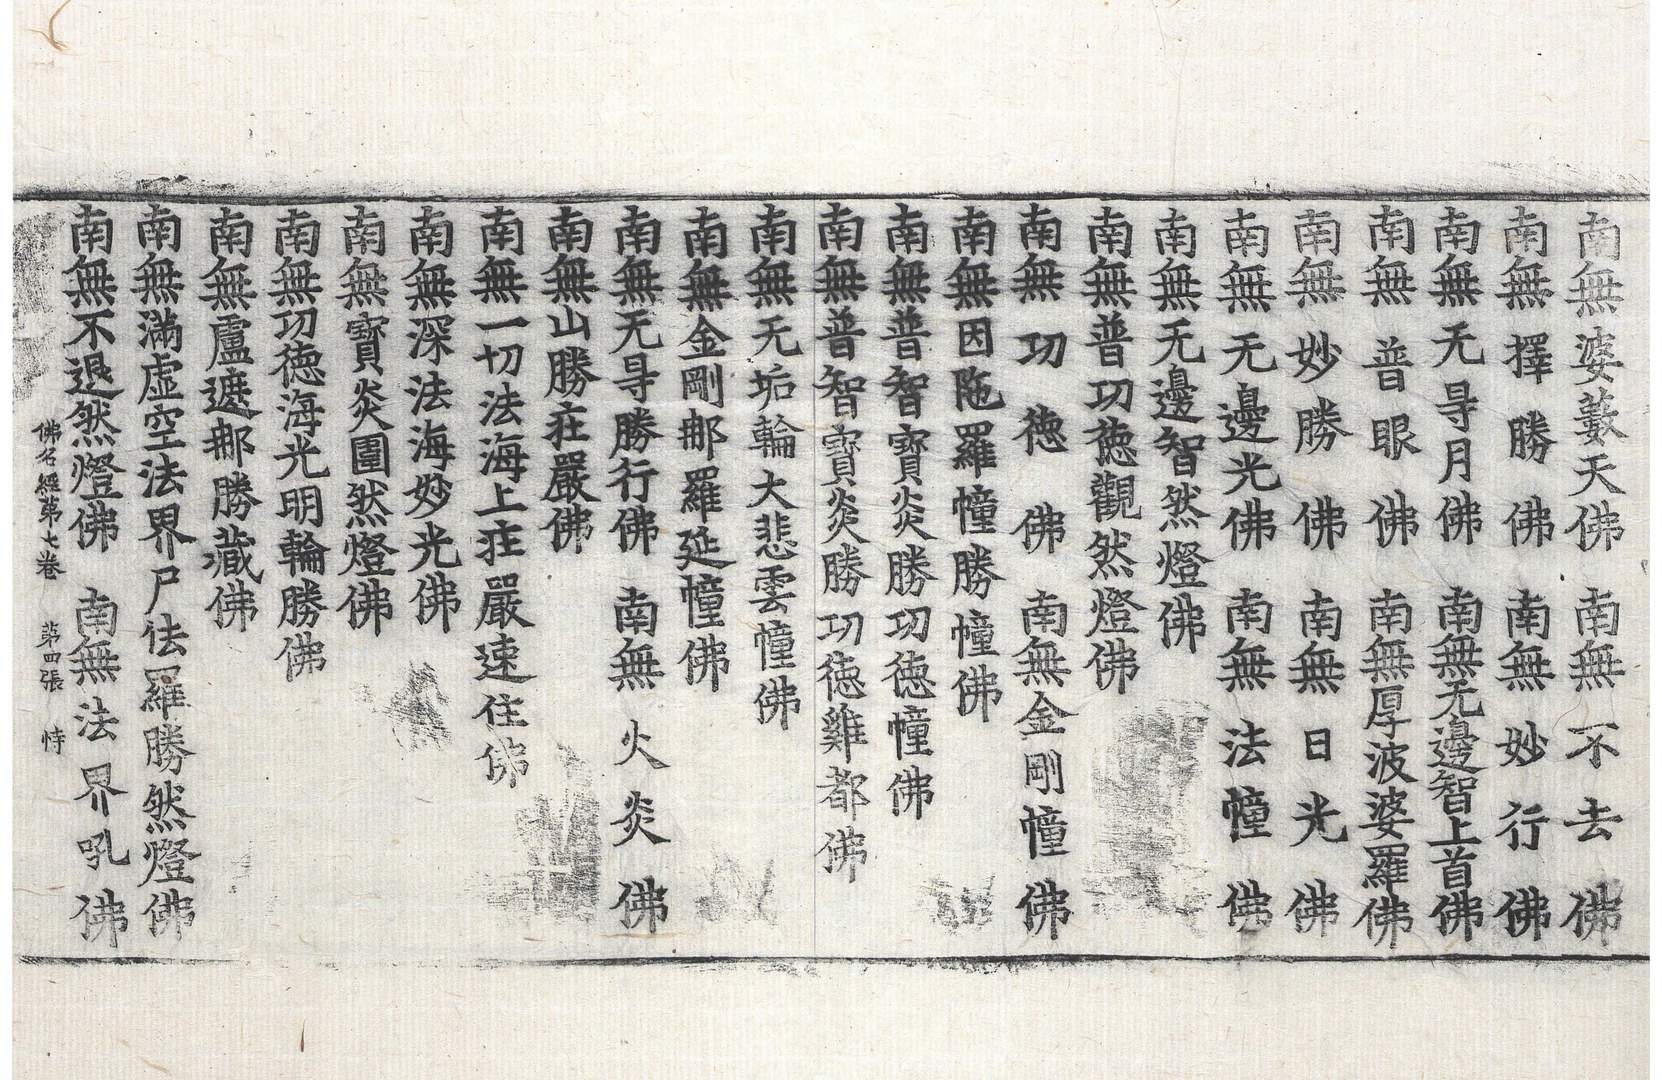 南無婆藪天佛 南無不去佛
南無擇勝佛 南無妙行佛
南無无㝵月佛 南無无邊智上首佛
南無普眼佛 南無厚波婆羅佛
南無妙勝佛 南無日光佛
南無无邊光佛 南無法幢佛
南無无邊智然燈佛
南無普功德觀然燈佛
南無功德佛 南無金剛幢佛
南無因陁羅幢勝幢佛
南無普智寶炎勝功德幢佛
南無普智寶炎勝功德雞都佛
南無无垢輪大悲雲幢佛
南無金剛那羅延幢佛
南無无㝵勝行佛 南無火炎佛
南無山勝莊嚴佛
南無一切法海上莊嚴速住佛
南無深法海妙光佛
南無寶炎圍然燈佛
南無功德海光明輪勝佛
南無盧遮那勝藏佛
南無滿虛空法界尸佉羅勝然燈佛
南無不退然燈佛 南無法界吼佛
佛名經第七卷 第四張 恃